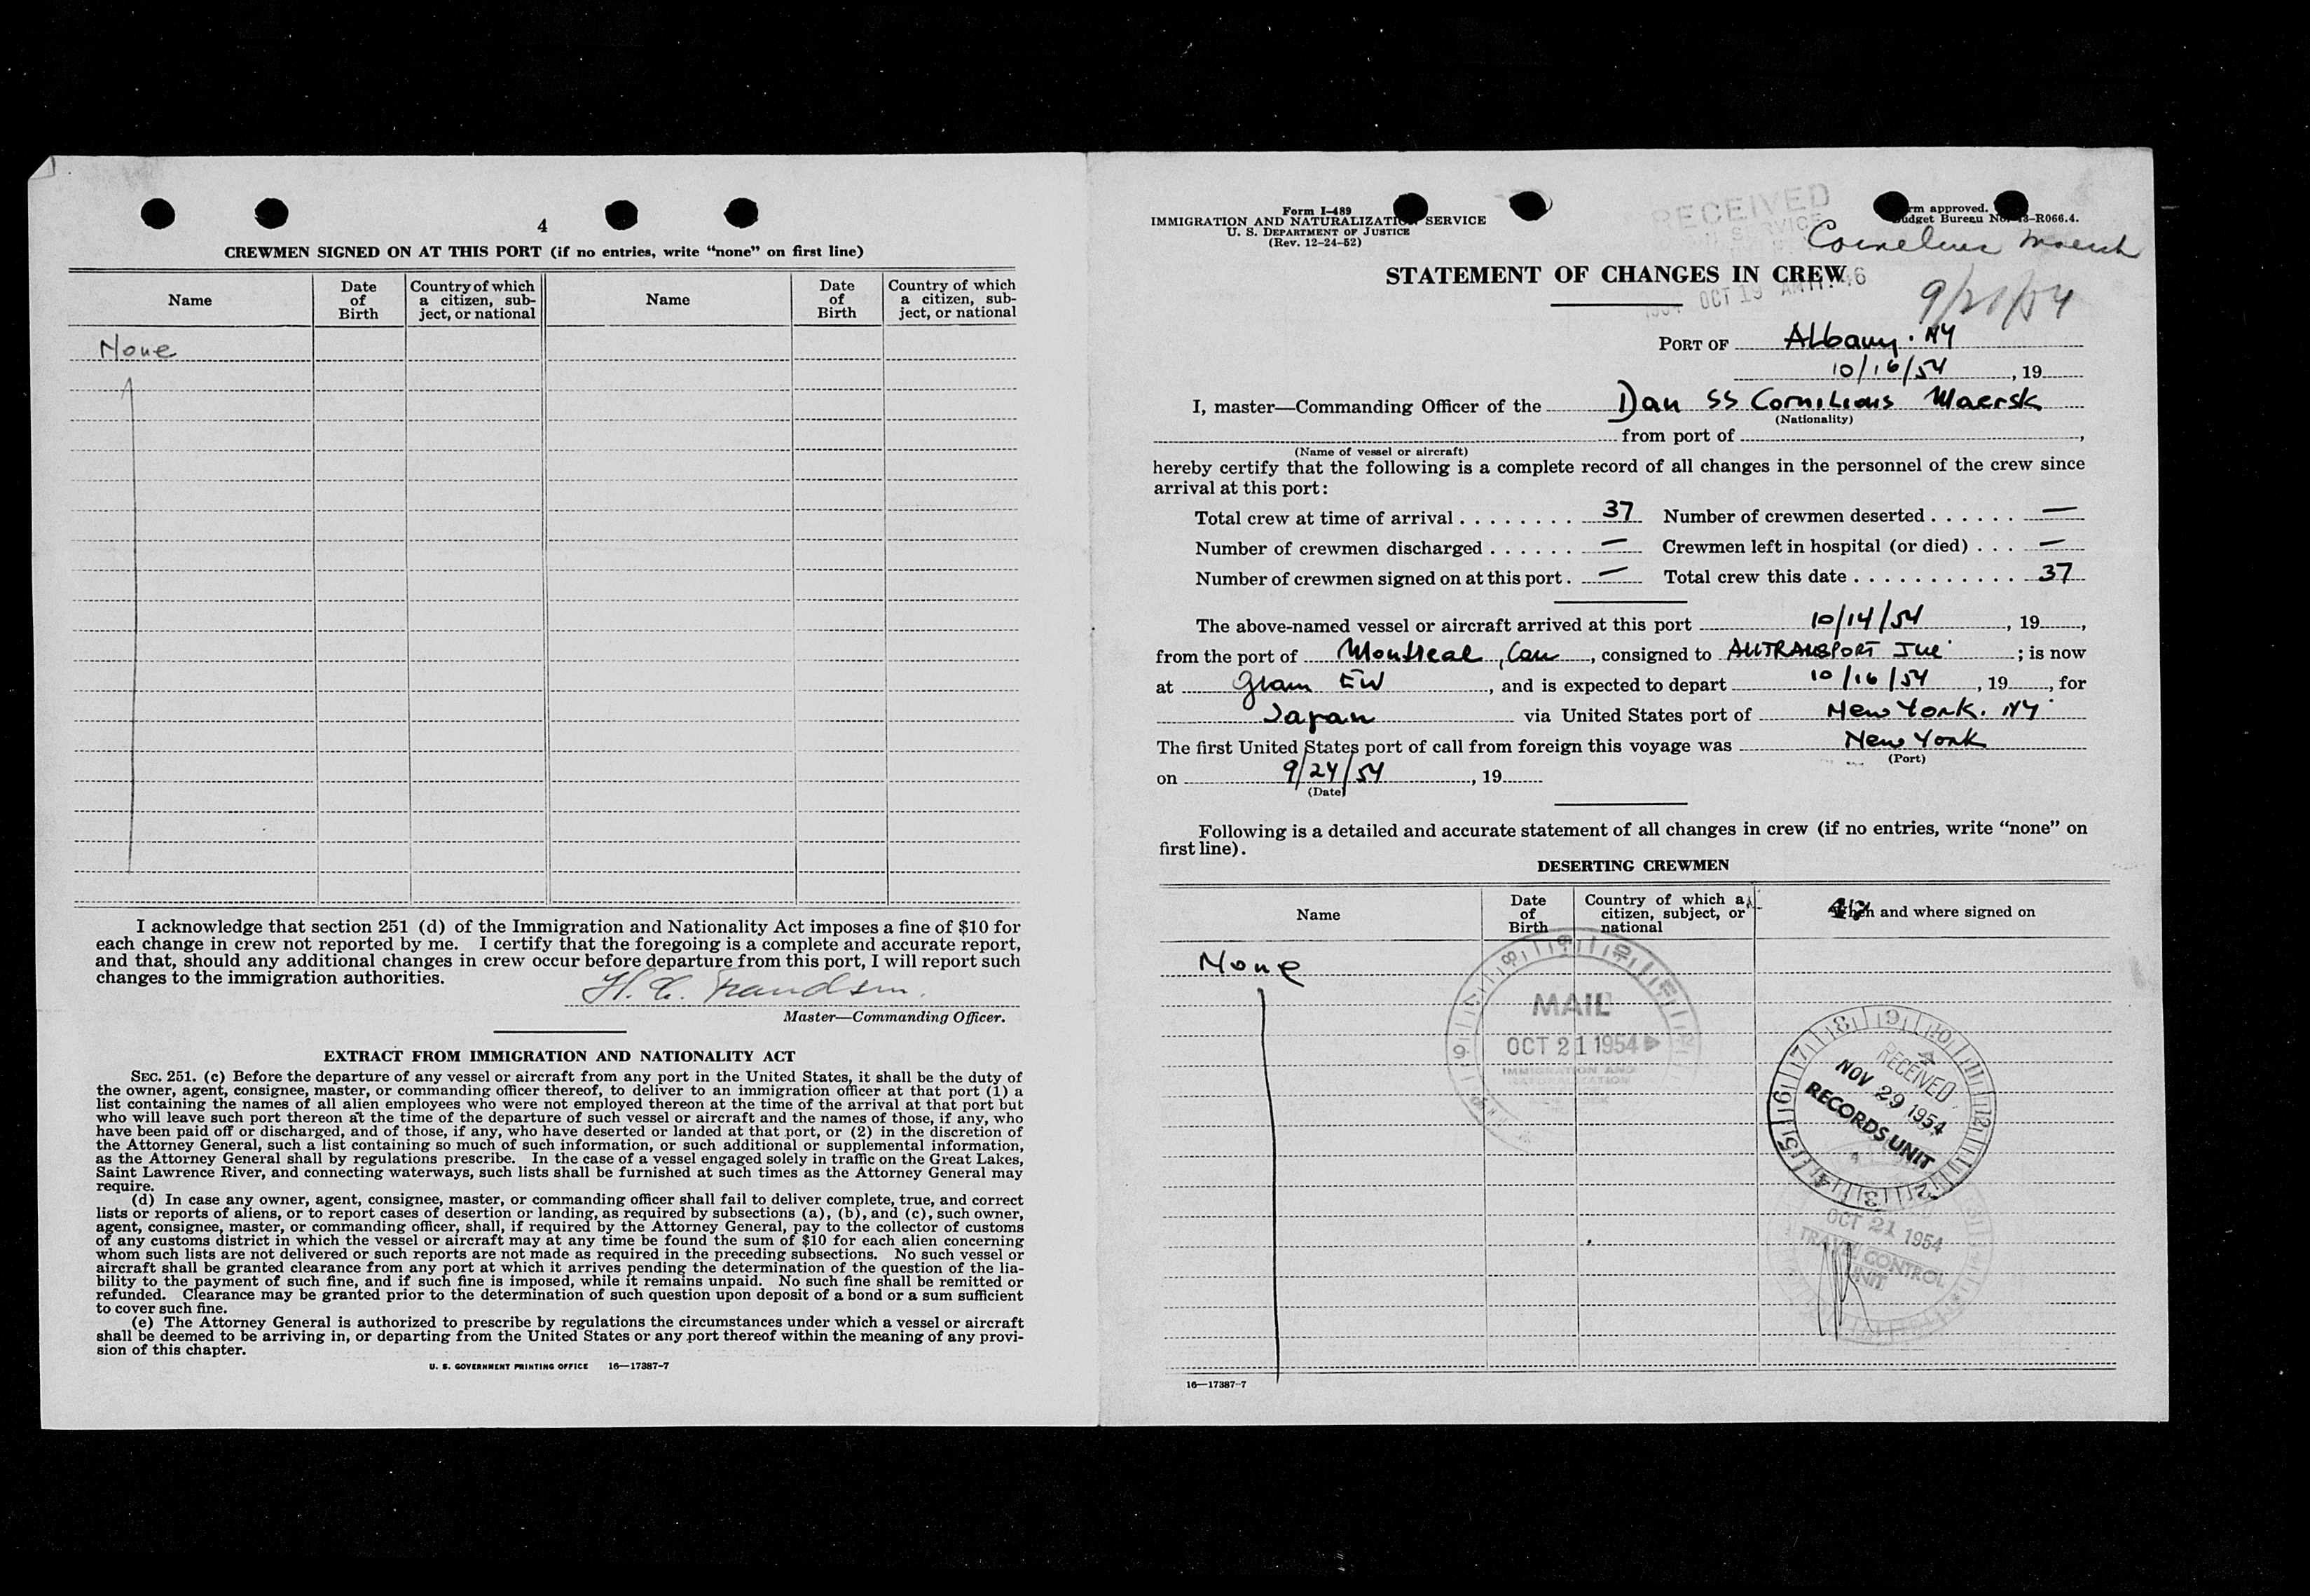 4
CREWMEN SIGNED ON AT THIS PORT (if no entries, write “none” on first line)
Name Date of Birth Country of which a citizen, subject, or national Name Date of Birth Country of which a citizen, subject, or national
None
I acknowledge that section 251 (d) of the Immigration and Nationality Act imposes a fine of $10 for
each change in crew not reported by me. I certify that the foregoing is a complete and accurate report,
and that, should any additional changes in crew occur before departure from this port, I will report such
changes to the immigration authorities.
Master—Commanding Officer.
EXTRACT FROM IMMIGRATION AND NATIONALITY ACT
SEC. 251. (c) Before the departure of any vessel or aircraft from any port in the United States, it shall be the duty of
the owner, agent, consignee, master, or commanding officer thereof, to deliver to an immigration officer at that port (1) a
list containing the names of all alien employees who were not employed thereon at the time of the arrival at that port but
who will leave such port thereon at the time of the departure of such vessel or aircraft and the names of those, if any, who
have been paid off or discharged, and of those, if any, who have deserted or landed at that port, or (2) in the discretion of
the Attorney General, such a list containing so much of such information, or such additional or supplemental information,
as the Attorney General shall by regulations prescribe. In the case of a vessel engaged solely in traffic on the Great Lakes,
Saint Lawrence River, and connecting waterways, such lists shall be furnished at such times as the Attorney General may
require.
(d) In case any owner, agent, consignee, master, or commanding officer shall fail to deliver complete, true, and correct
lists or reports of aliens, or to report cases of desertion or landing, as required by subsections (a), (b), and (c), such owner,
agent, consignee, master, or commanding officer, shall, if required by the Attorney General, pay to the collector of customs
of any customs district in which the vessel or aircraft may at any time be found the sum of $10 for each alien concerning
whom such lists are not delivered or such reports are not made as required in the preceding subsections. No such vessel or
aircraft shall be granted clearance from any port at which it arrives pending the determination of the question of the lia-
bility to the payment of such fine, and if such fine is imposed, while it remains unpaid. No such fine shall be remitted or
refunded. Clearance may be granted prior to the determination of such question upon deposit of a bond or a sum sufficient
to cover such fine.
(e) The Attorney General is authorized to prescribe by regulations the circumstances under which a vessel or aircraft
shall be deemed to be arriving in, or departing from the United States or any port thereof within the meaning of any provi-
sion of this chapter.
U. S. GOVERNMENT PRINTING OFFICE 16—17387-7
Form I-489
IMMIGRATION AND NATURALIZATION SERVICE
U. S. DEPARTMENT OF JUSTICE
(Rev. 12-24-52)
RECEIVED
approved.
Budget Bureau No. 43-R066.4.
STATEMENT OF CHANGES IN CREW
OCT 19
PORT OF Albany. NY
10/16/54, 19
I, master—Commanding Officer of the Dan SS Cornilious Maersk
(Nationality)
from port of ,
(Name of vessel or aircraft)
hereby certify that the following is a complete record of all changes in the personnel of the crew since
arrival at this port:
Total crew at time of arrival 37 Number of crewmen deserted —
Number of crewmen discharged — Crewmen left in hospital (or died) —
Number of crewmen signed on at this port — Total crew this date 37
The above-named vessel or aircraft arrived at this port 10/14/54, 19,
from the port of Montreal, Can, consigned to Inc; is now
at Grain, and is expected to depart 10/16/54, 19, for
Japan via United States port of New York. NY
The first United States port of call from foreign this voyage was New York
(Port)
on 9/24/54, 19
(Date)
Following is a detailed and accurate statement of all changes in crew (if no entries, write “none” on
first line).
DESERTING CREWMEN
Name Date of Birth Country of which a citizen, subject, or national When and where signed on
None
MAIL
OCT 21 1954
IMMIGRATION AND
NATURALIZATION
RECEIVED
NOV 29 1954
RECORDS UNIT
OCT 21 1954
TRAVEL CONTROL
UNIT
16—17387-7